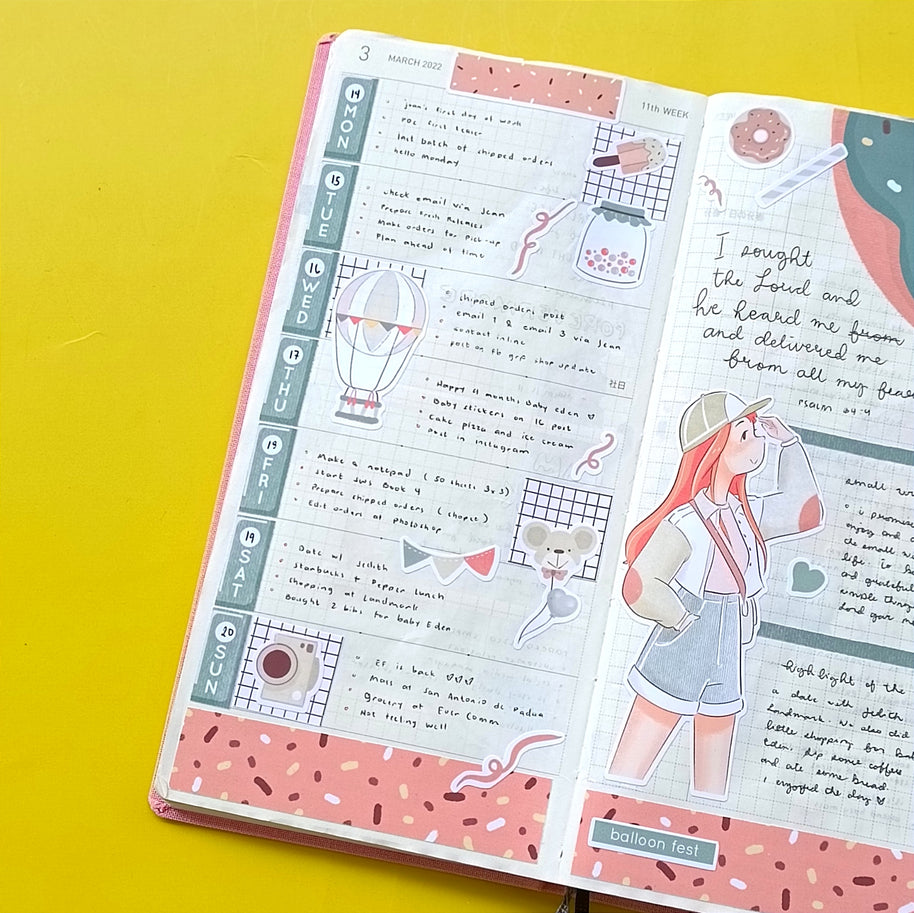 3 MARCH 2022
11th WEEK
14 MON
joan's first day of work
POC first teaser
last batch of shipped orders
hello monday
15 TUE
check email via Jean
Prepare Fresh Releases
Make orders for Pick-up
Plan ahead of time
16 WED
shipped orders post
email 1 & email 3 via Jean
contact inline
post on fb grp shop update
17 THU
社日
Happy 4 months Baby Eden
Baby stickers on IG post
Cake pizza and ice cream
Post in instagram
19 FRI
Make a notepad ( 50 sheets 3x3)
Start Jw's Book 4
Prepare shipped orders ( shopee)
Edit orders at Photoshop
19 SAT
Date w/ Jedith
Starbucks + Pepper Lunch
shopping at Landmark
Bought 2 bibs for baby Eden
20 SUN
EF is back
Mass at San Antonio de Padua
Grocery at Ever Comm
Not feeling well
I sought
the Lord and
he heard me from
and delivered me
from all my fears
psalm 34:4
small
i promise
enjoy and
the small
life. to
and grateful
simple things
Lord gave
highlight of the
a date with Jedith
landmark. We also did
little shopping for
Eden, sip some coffee
and ate some bread.
I enjoyed the day
balloon fest